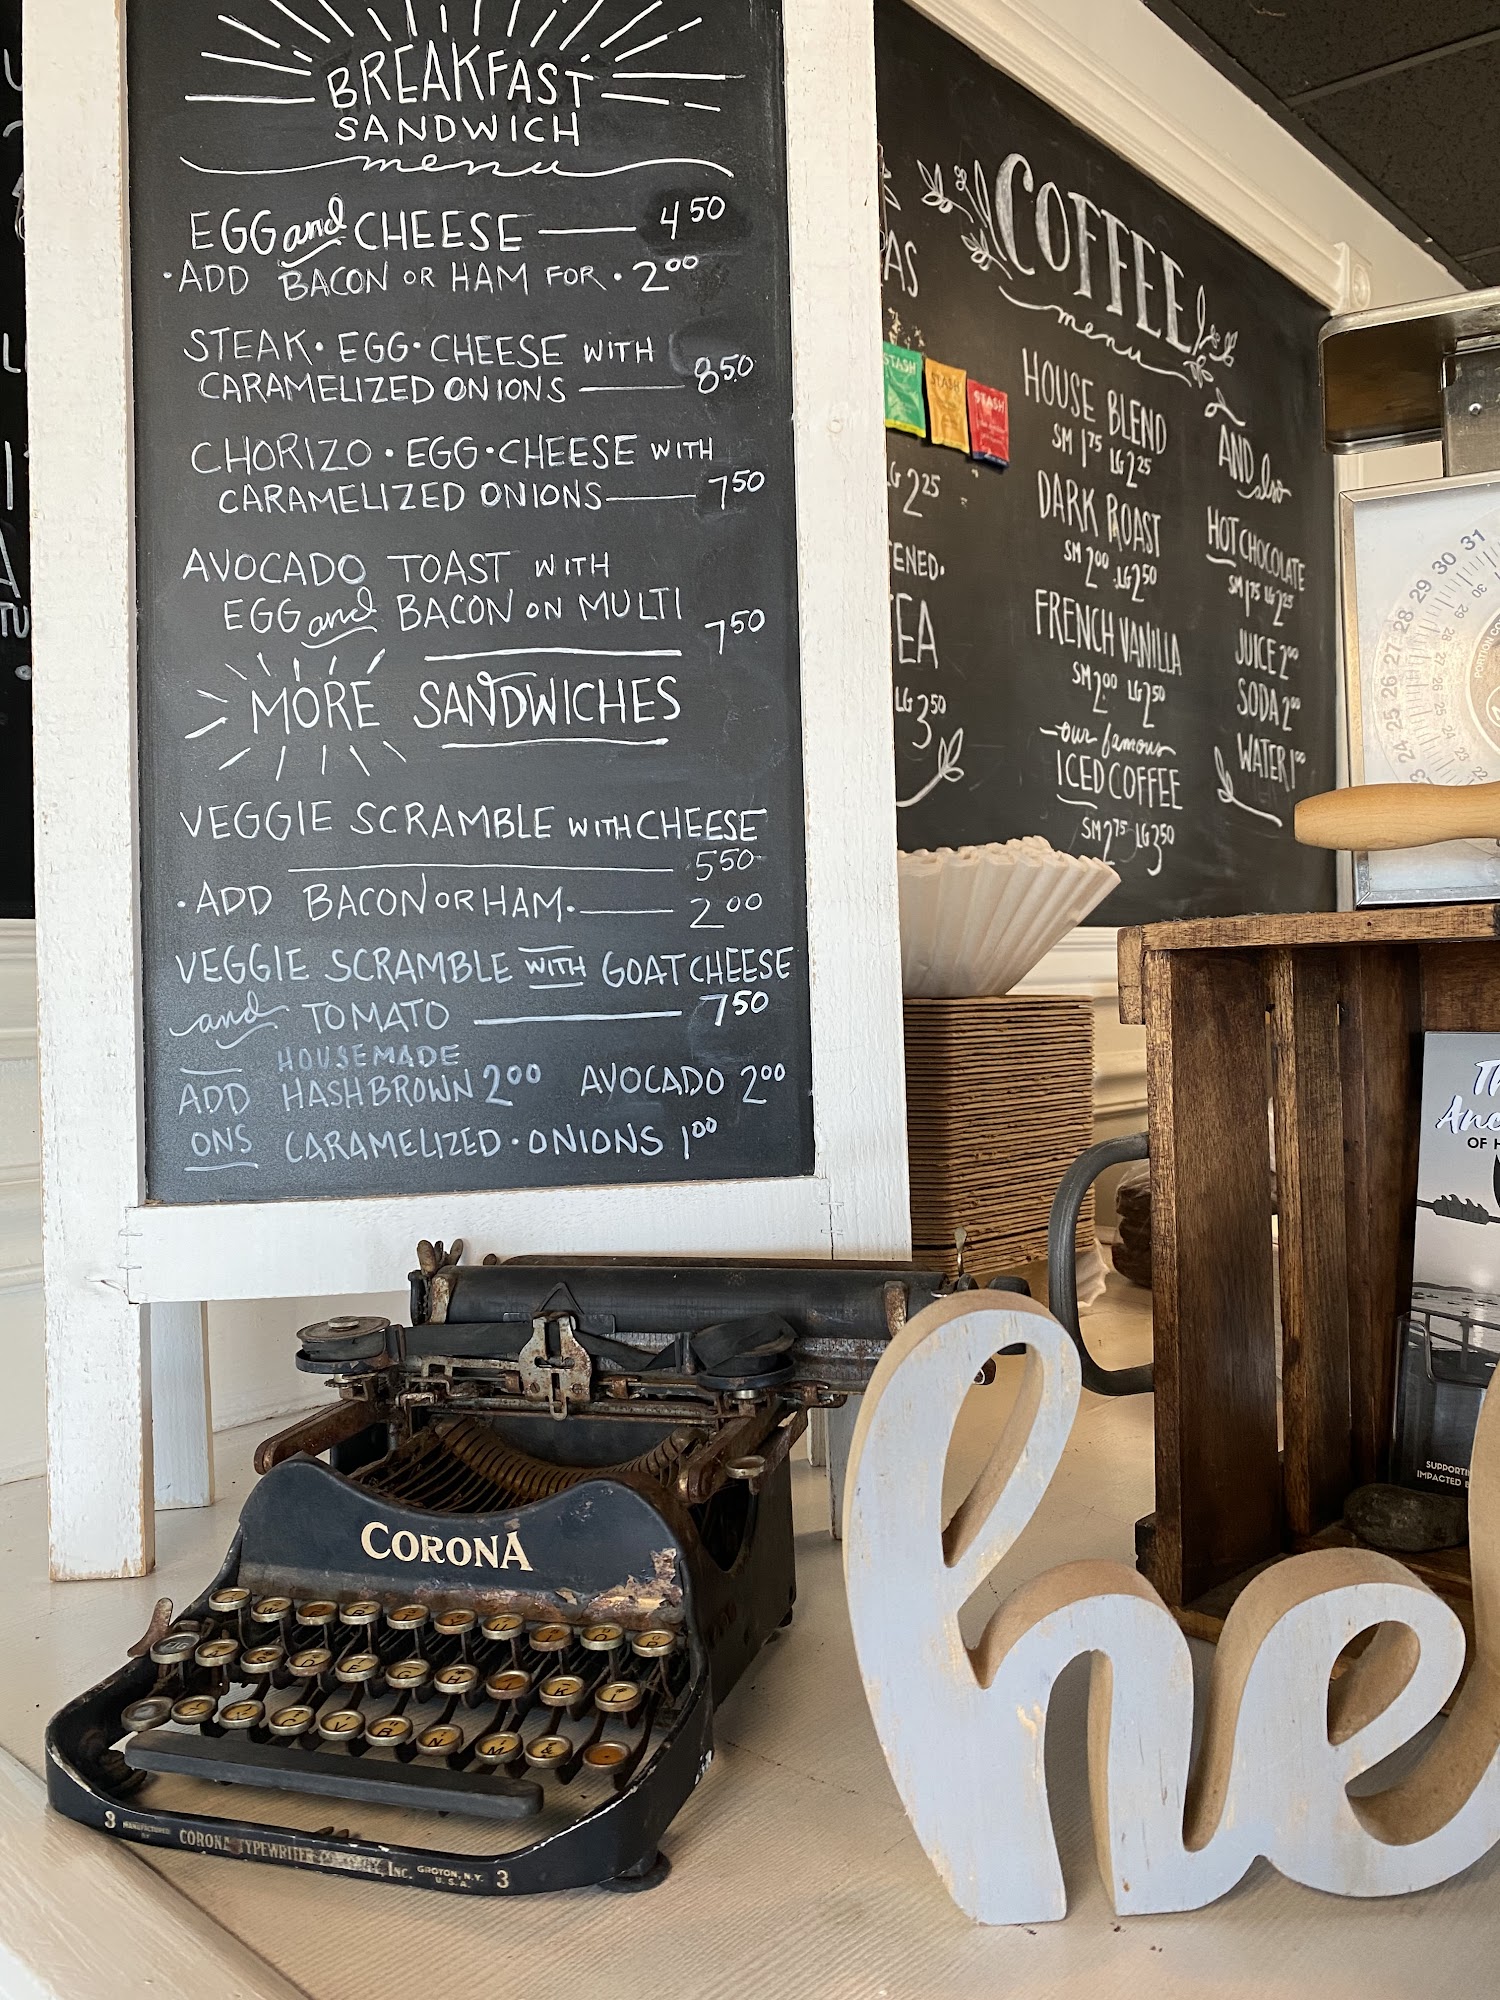 BREAKFAST
SANDWICH
menu
EGG and CHEESE 4 50
·ADD BACON OR HAM FOR · 2 00
STEAK · EGG · CHEESE WITH
CARAMELIZED ONIONS 8 50
CHORIZO · EGG · CHEESE WITH
CARAMELIZED ONIONS 7 50
AVOCADO TOAST WITH
EGG and BACON ON MULTI
7 50
MORE SANDWICHES
VEGGIE SCRAMBLE WITH CHEESE
5 50
·ADD BACON OR HAM· 2 00
VEGGIE SCRAMBLE WITH GOAT CHEESE
and TOMATO 7 50
HOUSEMADE
ADD HASHBROWN 2 00 AVOCADO 2 00
ONS CARAMELIZED · ONIONS 1 00
COFFEE
menu
HOUSE BLEND
SM 1 75 LG 2 25
DARK ROAST
SM 2 00 LG 2 50
FRENCH VANILLA
SM 2 00 LG 2 50
our famous
ICED COFFEE
SM 2 75 LG 3 50
AND also
HOT CHOCOLATE
SM 1 75 LG 2 25
JUICE 2 00
SODA 2 00
WATER 1 00
AS
STASH
STASH
STASH
LG 2 25
ENED.
EA
LG 3 50
31
30
29
28
27
26
25
24
23
CORONA
3 MANUFACTURED BY CORONA TYPEWRITER COMPANY, INC. GROTON, N.Y. U.S.A. 3
he
OF H
SUPPORTI
IMPACTED B